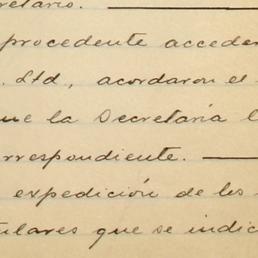 retario.
procedente acceder
. Ltd., acordaron el
que la Secretaría l
orrespondiente.
expedición de los
ulares que se indic